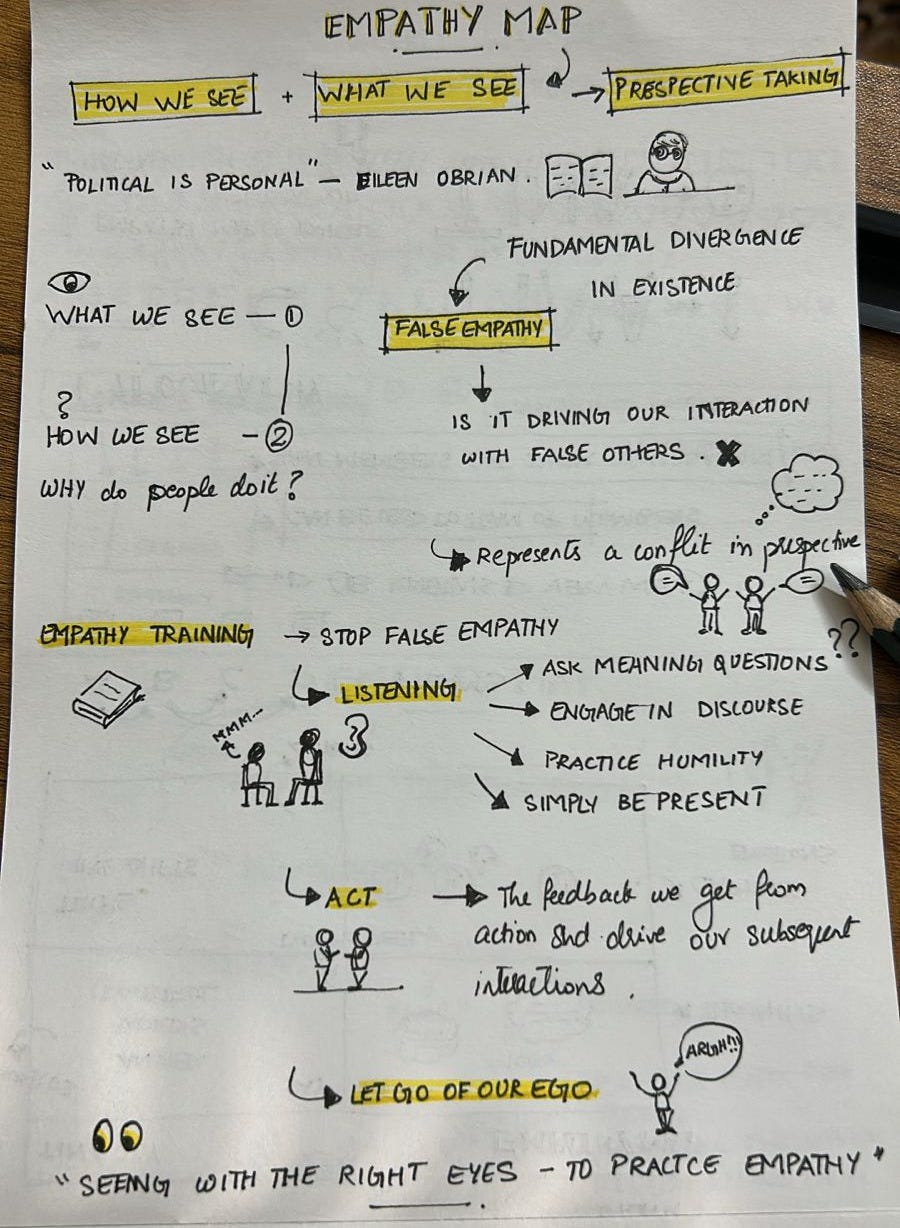 EMPATHY MAP
HOW WE SEE + WHAT WE SEE → PRESPECTIVE TAKING
"POLITICAL IS PERSONAL" — EILEEN OBRIAN.
FUNDAMENTAL DIVERGENCE
IN EXISTENCE
WHAT WE SEE — ①
FALSE EMPATHY
?
HOW WE SEE — ②
IS IT DRIVING OUR INTERACTION
WITH FALSE OTHERS. X
WHY do people do it?
Represents a conflit in prespective
EMPATHY TRAINING → STOP FALSE EMPATHY
??
LISTENING
ASK MEANING QUESTIONS
ENGAGE IN DISCOURSE
PRACTICE HUMILITY
SIMPLY BE PRESENT
MMM...
ACT → The feedback we get from
action shd drive our subsequent
interactions.
ARGH!!!
LET GO OF OUR EGO
"SEEING WITH THE RIGHT EYES - TO PRACTCE EMPATHY"